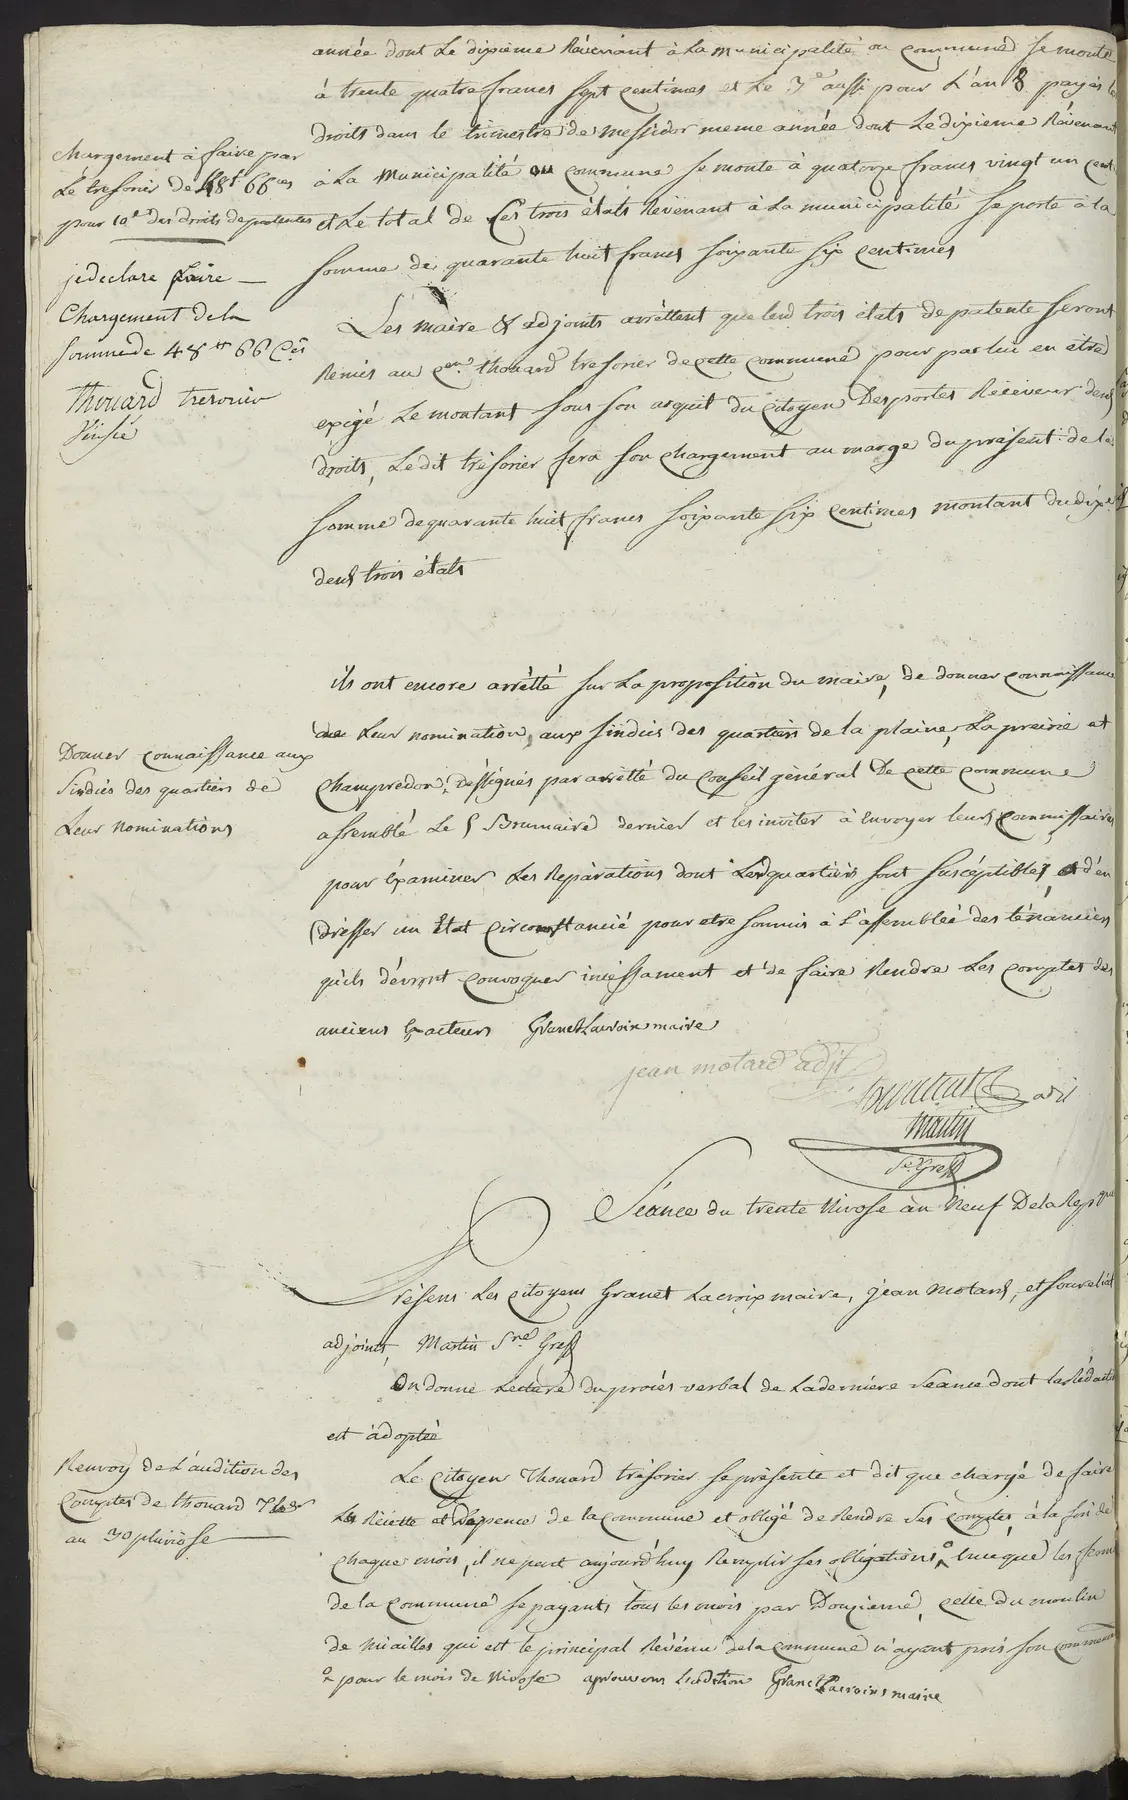 année dont Le dixieme Revenant à La Municipalité ou commune se monte
à trente quatre francs sept centimes et Le 3e aussi pour L'an 8 payés
droits dans le trimestre de messidor meme année dont Le dixieme Revenant
à La Municipalité ou commune se monte à quatorze francs vingt un cent
et Le total de ces trois états Revenant à La municipalité se porte à la
somme de quarante huit francs soixante six centimes
chargement à faire par
Le tresorier de 48# 66ces
pour 10e des droits de patentes
je declare faire
Chargement de la
somme de 48# 66 Ces
Thouard tresorier
Les maire & adjoints arrêttent que lesd trois états de patente seront
Remis au cen Thouard tresorier de cette commune pour par lui en être
exigé Le montant sous son acquit du citoyen Desportes Receveur desd
droits, Le dit trésorier fera son chargement au marge du présent de la
somme de quarante huit francs soixante six centimes montant du dixe
desd trois états
ils ont encore arrêtté sur La proposition du maire, de donner connaissance
de Leur nomination, aux sindics des quartiers de la plaine, La prairie et
champredon, désignés par arrêtté du conseil général De cette commune
assemblé Le 5 Brumaire dernier et les inviter à Envoyer leurs commissaires
pour Examiner Les Reparations dont Lesd quartiers sont suscéptibles, et d'en
Dresser un Etat circonstancié pour etre soumis à L'assemblée des ténanciers
qu'ils dévront convoquer incéssament et de faire Rendre Les comptes des
anciens Exacteurs Granet Lacroix maire
Donner connaissance aux
Sindics des quartiers de
Leur nominations
jean motard adjt
adjt
Martin
Sre Greff
Séance du trente Nivose an Neuf De la Repque
Présens Les citoyens Granet Lacroix maire, jean Motard, et
adjoints, Martin Sre Greff
On donne Lecture du procés verbal de La derniére séance dont la Rédaction
est adoptée
Renvoy de L'audition des
Comptes de thouard
au 30 pluviôse
Le citoyen Thouard trésorier se présente et dit que chargé de faire
La Récette et Dépence de la commune et obligé de Rendre Ses comptes, à la fin de
chaque mois, il ne peut aujourd'huy Remplir ses obligations ° Vu que les ferm
de la commune se payants tous les mois par Douzieme, celle du moulin
de Miailles qui est le principal Révénu de la commune n'ayant pris son commen
° pour le mois de Nivose aprouvons L'adition Granet Lacroix maire